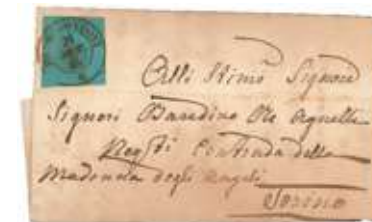 Alli Stimi Signori
Signori Baredino Ole Agnelli
Negti Contrada della
Madonna degli Angeli
Torino